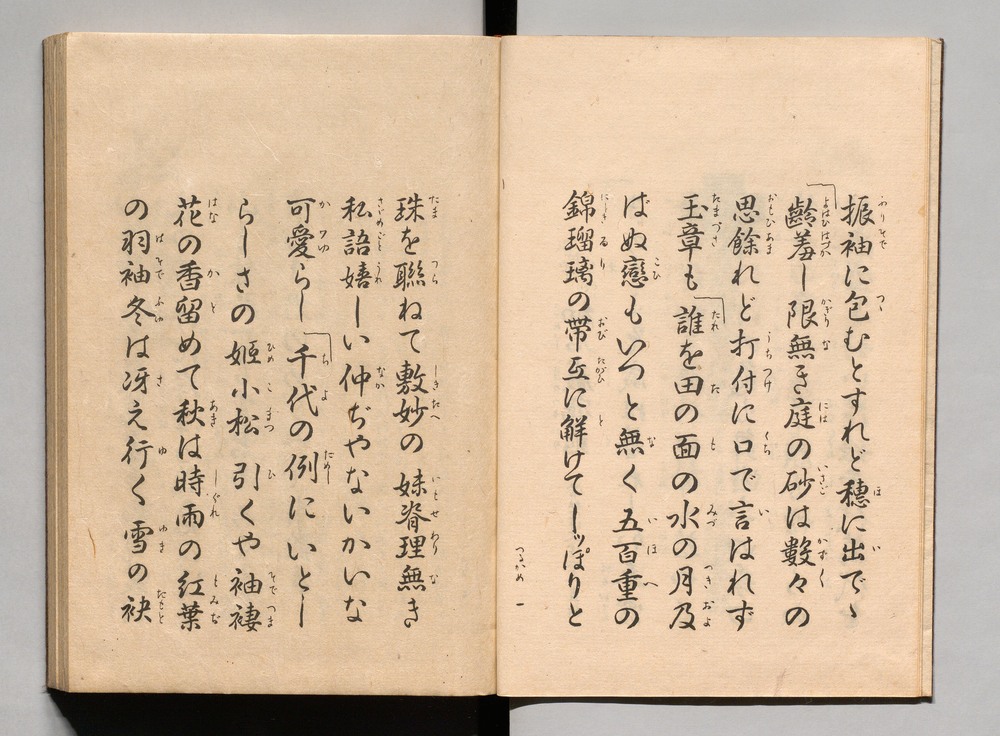 振袖に包むとすれど穂に出でゝ
齢羞し限無き庭の砂は数々の
思餘れど打付に口で言はれず
玉章も誰を田の面の水の月及
ばぬ戀もいつと無く五百重の
錦瑠璃の帯互に解けてしッぽりと
つるかめ 一
珠を聯ねて敷妙の妹脊理無き
私語嬉しい仲ぢやないかいな
可愛らし千代の例にいとし
らしさの姫小松引くや袖褄
花の香留めて秋は時雨の紅葉
の羽袖冬は冴え行く雪の袂